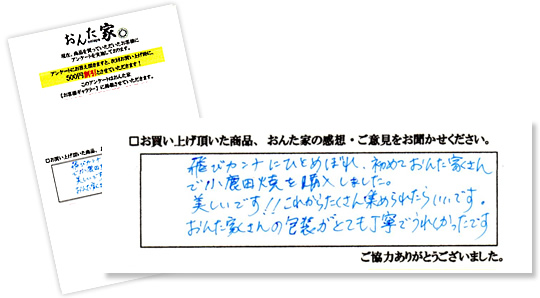 おんた家
現在、商品を買っていただいたお客様に
アンケートを実施しております。
アンケートにお答え頂きますと、次回お買い上げ時に、
500円割引とさせていただきます！
このアンケートはおんた家
【お客様ギャラリー】に掲載させていただきます。
□お買い上げ頂いた商品、
飛びカンナにひとめぼれ
で小鹿田焼を
美しいです!!
おんた家くさん
□お買い上げ頂いた商品、おんた家の感想・ご意見をお聞かせください。
飛びカンナにひとめぼれ、初めておんた家さん
で小鹿田焼を購入しました。
美しいです!!これからたくさん集められたらいいです。
おんた家さんの包装がとても丁寧でうれしかったです
ご協力ありがとうございました。